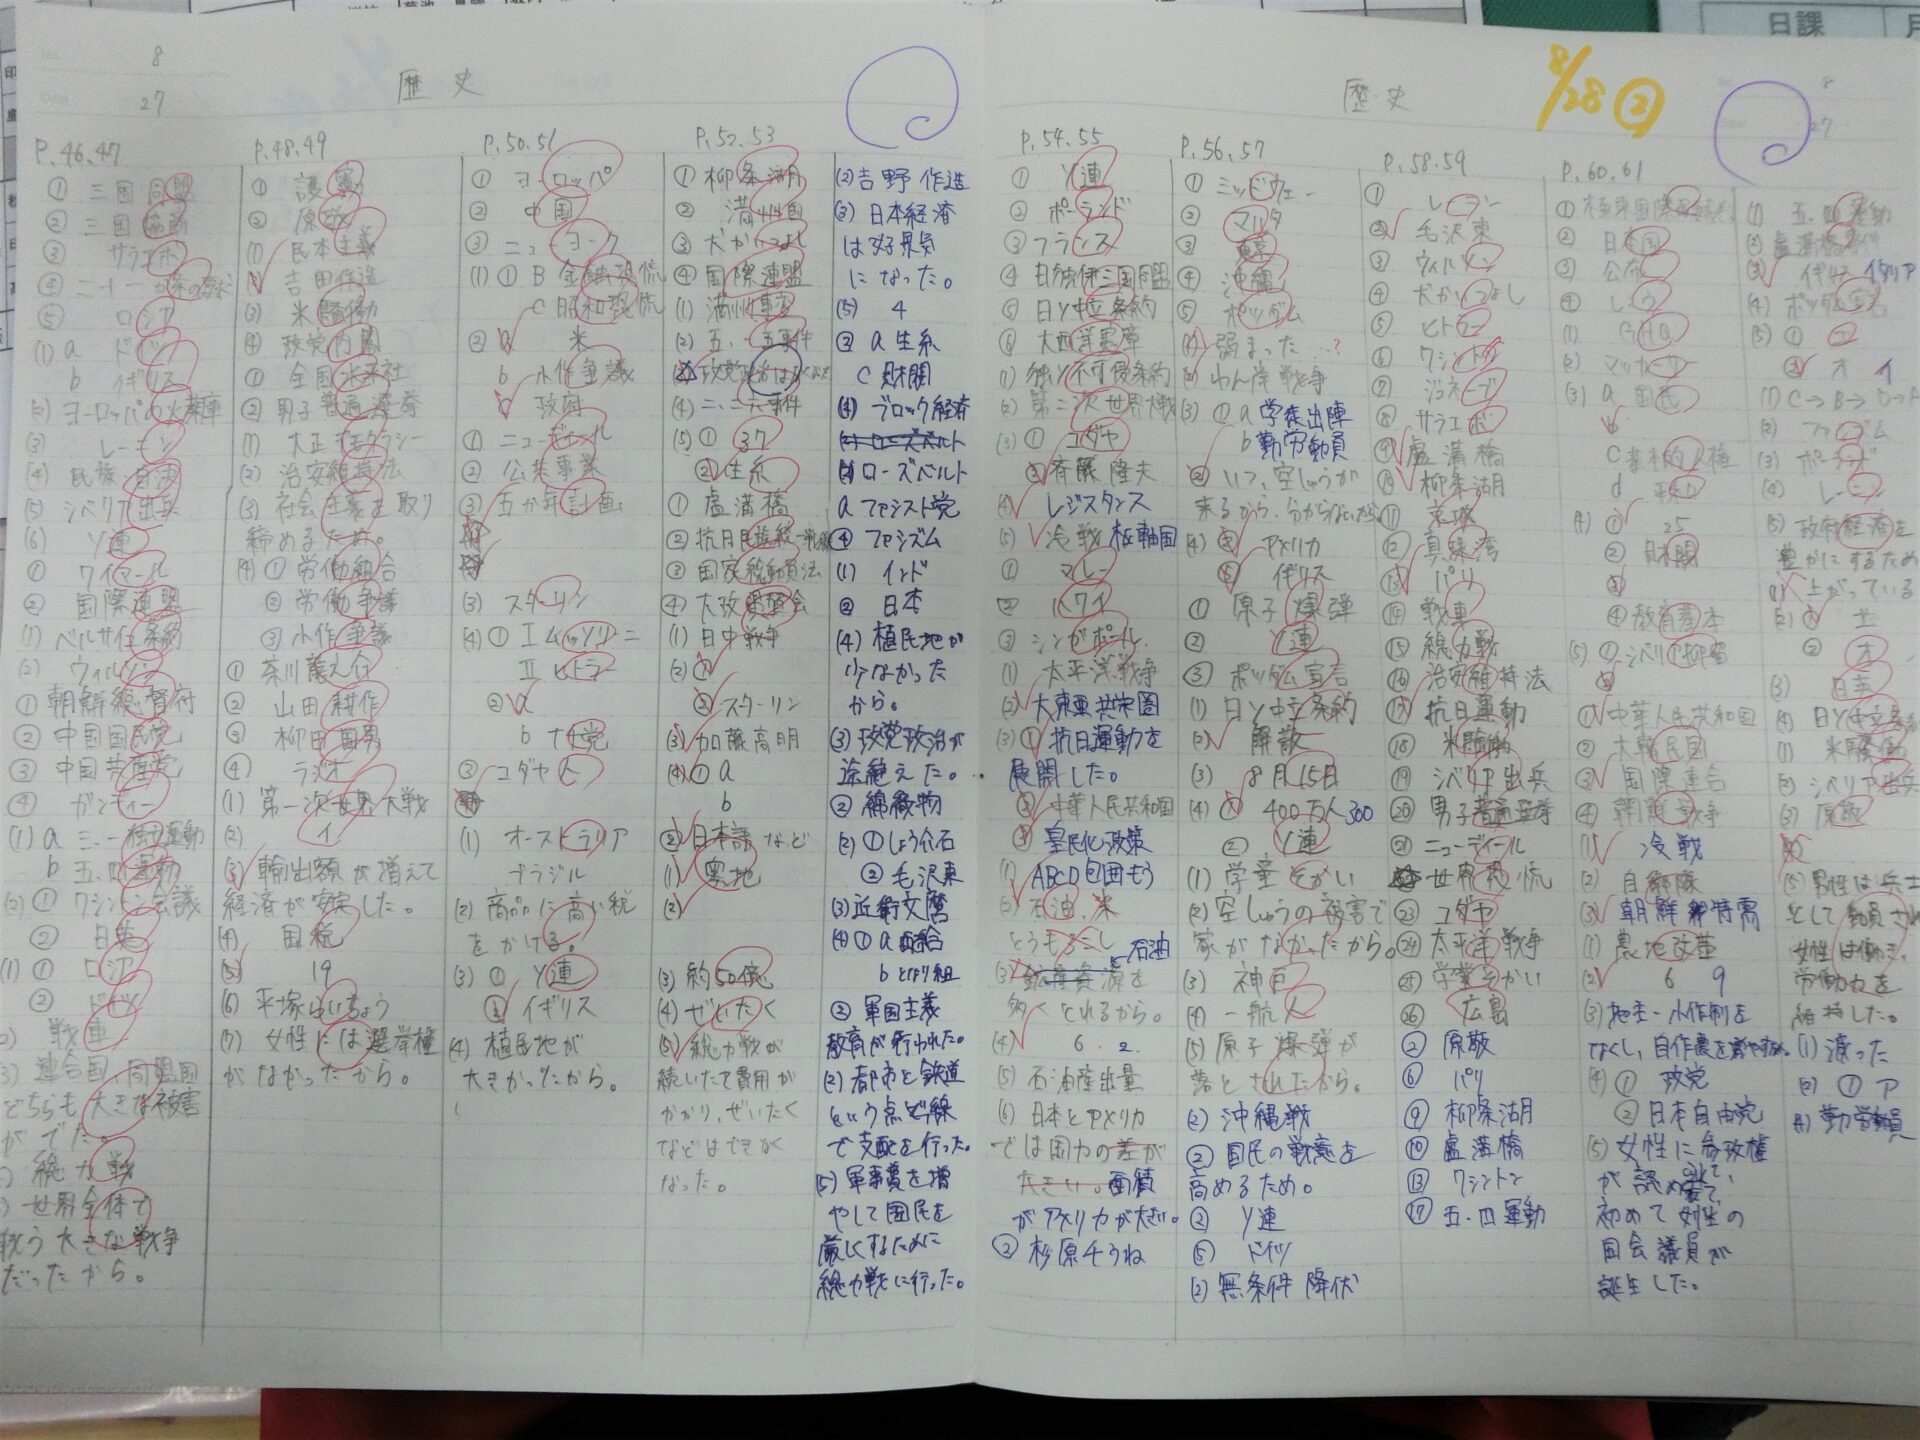 日課
8
27
歴史
P.46.47
① 三国同盟
② 三国協商
③ サラエボ
⑤ ロシア
(1) a ドイツ
b イギリス
(2) ヨーロッパの火薬庫
(3) レーニン
(4) 民族自決
(5) シベリア出兵
(6) ソ連
① ワイマール
② 国際連盟
(1) ベルサイユ条約
(2) ウィルソン
① 朝鮮総督府
② 中国国民党
③ 中国共産党
④ ガンディー
(1) a 三・一独立運動
b 五.四運動
(2) ① ワシントン会議
② 日英
(1) ① ロシア
② ドイツ
戦車
連合国、同盟国
どちらも大きな被害
がでた。
総力戦
世界全体で
戦う大きな戦争
だったから。
P.48.49
① 護憲
② 原敬
(1) 民本主義
吉田作造
(3) 米騒動
(4) 政党内閣
① 全国水平社
② 男子普通選挙
(1) 大正デモクラシー
(2) 治安維持法
(3) 社会主義を取り
締めるため。
(4) ① 労働組合
② 労働争議
③ 小作争議
① 芥川龍之介
② 山田耕作
③ 柳田国男
④ ラジオ
(1) 第一次世界大戦
(2) イ
(3) 輸出額が増えて
経済が安定した。
(4) 国税
(5) 19
(6) 平塚らいちょう
(7) 女性には選挙権
がなかったから。
P.50.51
① ヨーロッパ
② 中国
③ ニューヨーク
(1) ① B 金融恐慌
C 昭和恐慌
② a 米
b 小作争議
c 政府
① ニューディール
② 公共事業
③ 五か年計画
(3) スターリン
(4) ① Ⅰ ムッソリーニ
Ⅱ ヒトラー
② a
b ナチ党
③ ユダヤ人
(1) オーストラリア
ブラジル
(2) 商品に高い税
をかける。
(3) ① ソ連
② イギリス
(4) 植民地が
大きかったから。
P.52.53
① 柳条湖
② 満州国
③ 犬かいつよし
④ 国際連盟
(1) 満州事変
(2) 五.一五事件
(4) 二.二六事件
(5) ① 37
② 生糸
① 盧溝橋
② 抗日民族統一戦線
③ 国家総動員法
④ 大政翼賛会
(1) 日中戦争
(2) ①
② スターリン
(3) 加藤高明
(4) ① a
b
② 日本語など
(1) 奥地
(2)
(3) 約50億
(4) ぜいたく
(5) 総力戦が
続いたて費用が
かかり、ぜいたく
などはできなく
なった。
(2) 吉野作造
(3) 日本経済
は好景気
になった。
(5) 4
② a 生糸
c 財閥
(4) ブロック経済
ローズベルト
a ファシスト党
④ ファシズム
(1) インド
② 日本
(4) 植民地が
少なかった
から。
(3) 政党政治が
途絶えた。
② 綿織物
(2) ① しょう介石
② 毛沢東
(3) 近衛文麿
(4) ① a 配給
b となり組
② 軍国主義
教育が行われた。
(2) 都市と鉄道
という点と線
で支配を行った。
(5) 軍事費を増
やして国民を
厳しくするために
総力戦に行った。
歴史
8/28 ②
8
27
P.54.55
① ソ連
② ポーランド
③ フランス
④ 日独伊三国同盟
⑤ 日ソ中立条約
⑥ 大西洋憲章
(1) 独ソ不可侵条約
(2) 第二次世界大戦
(3) ① ユダヤ
② 斉藤隆夫
(4) レジスタンス
(5) 冷戦 枢軸国
① マレー
② ハワイ
③ シンガポール
(1) 太平洋戦争
(2) 大東亜共栄圏
(3) ① 抗日運動を
展開した。
② 中華人民共和国
皇民化政策
(1) ABCD包囲もう
(2) 石油、米
とうもろこし
石油
多くとれるから。
(4) 6. 2.
(5) 石油産出量
(6) 日本とアメリカ
では国力の差が
大きい。面積
がアメリカが大きい。
② 杉原千うね
P.56.57
① ミッドウェー
② マリアナ
③ 東京
④ 沖縄
⑤ ポツダム
弱まった…?
わん岸戦争
(3) ① a 学徒出陣
b 勤労動員
② いつ、空しゅうが
来るから、分からないから。
(4) ② アメリカ
⑤ イギリス
① 原子爆弾
② ソ連
③ ポツダム宣言
(1) 日ソ中立条約
(2) 解散
(3) 8月15日
(4) ① 400万人 300
② ソ連
(1) 学童そかい
(2) 空しゅうの被害で
家がなかったから。
(3) 神戸
(4) 一般人
(5) 原子爆弾が
落とされたから。
(2) 沖縄戦
② 国民の戦意を
高めるため。
② ソ連
⑤ ドイツ
(2) 無条件降伏
P.58.59
① レーニン
② 毛沢東
③ ウィルソン
④ 犬かいつよし
⑤ ヒトラー
⑥ ワシントン
⑦ ジュネーブ
⑧ サラエボ
⑨ 盧溝橋
⑩ 柳条湖
⑪ 京城
⑫ 真珠湾
⑬ パリ
⑭ 戦車
⑮ 総力戦
⑯ 治安維持法
⑰ 抗日運動
⑱ 米騒動
⑲ シベリア出兵
⑳ 男子普通選挙
㉑ ニューディール
世界恐慌
㉓ ユダヤ
㉔ 太平洋戦争
㉕ 学童そかい
㉖ 広島
② 原敬
⑥ パリ
⑨ 柳条湖
⑩ 盧溝橋
⑬ ワシントン
⑰ 五.四運動
P.60.61
② 日本国
③ 公布
(1) GHQ
(2) マッカーサー
(3) a 国民
b
c 基本的人権
d 平和
(4) ① 25
② 財閥
③
④ 教育基本
(5) ① シベリア抑留
① 中華人民共和国
② 大韓民国
③ 国際連合
④ 朝鮮戦争
(1) 冷戦
(2) 自衛隊
(3) 朝鮮特需
(1) 農地改革
(2) 6 9
(3) 地主・小作制を
なくし、自作農を増やすため。
(4) ① 政党
② 日本自由党
(5) 女性に参政権
が認められて、
初めて女性の
国会議員が
誕生した。
(1) 五.四運動
(2) 盧溝橋事件
(3) イギリス イタリア
(4) ポツダム宣言
(5) ① エ
② オ イ
(2) ファシズム
(3) ポーランド
(4) レーニン
(5) 政府が経済を
豊かにするため
上がっている
② オ
(3) 日英
(1) 米騒動
(2) シベリア出兵
(3) 原敬
(5) 男性は兵士
として動員され
女性は働き、
労働力を
維持した。
(1) 減った
(2) ① ア
(4) 勤労動員